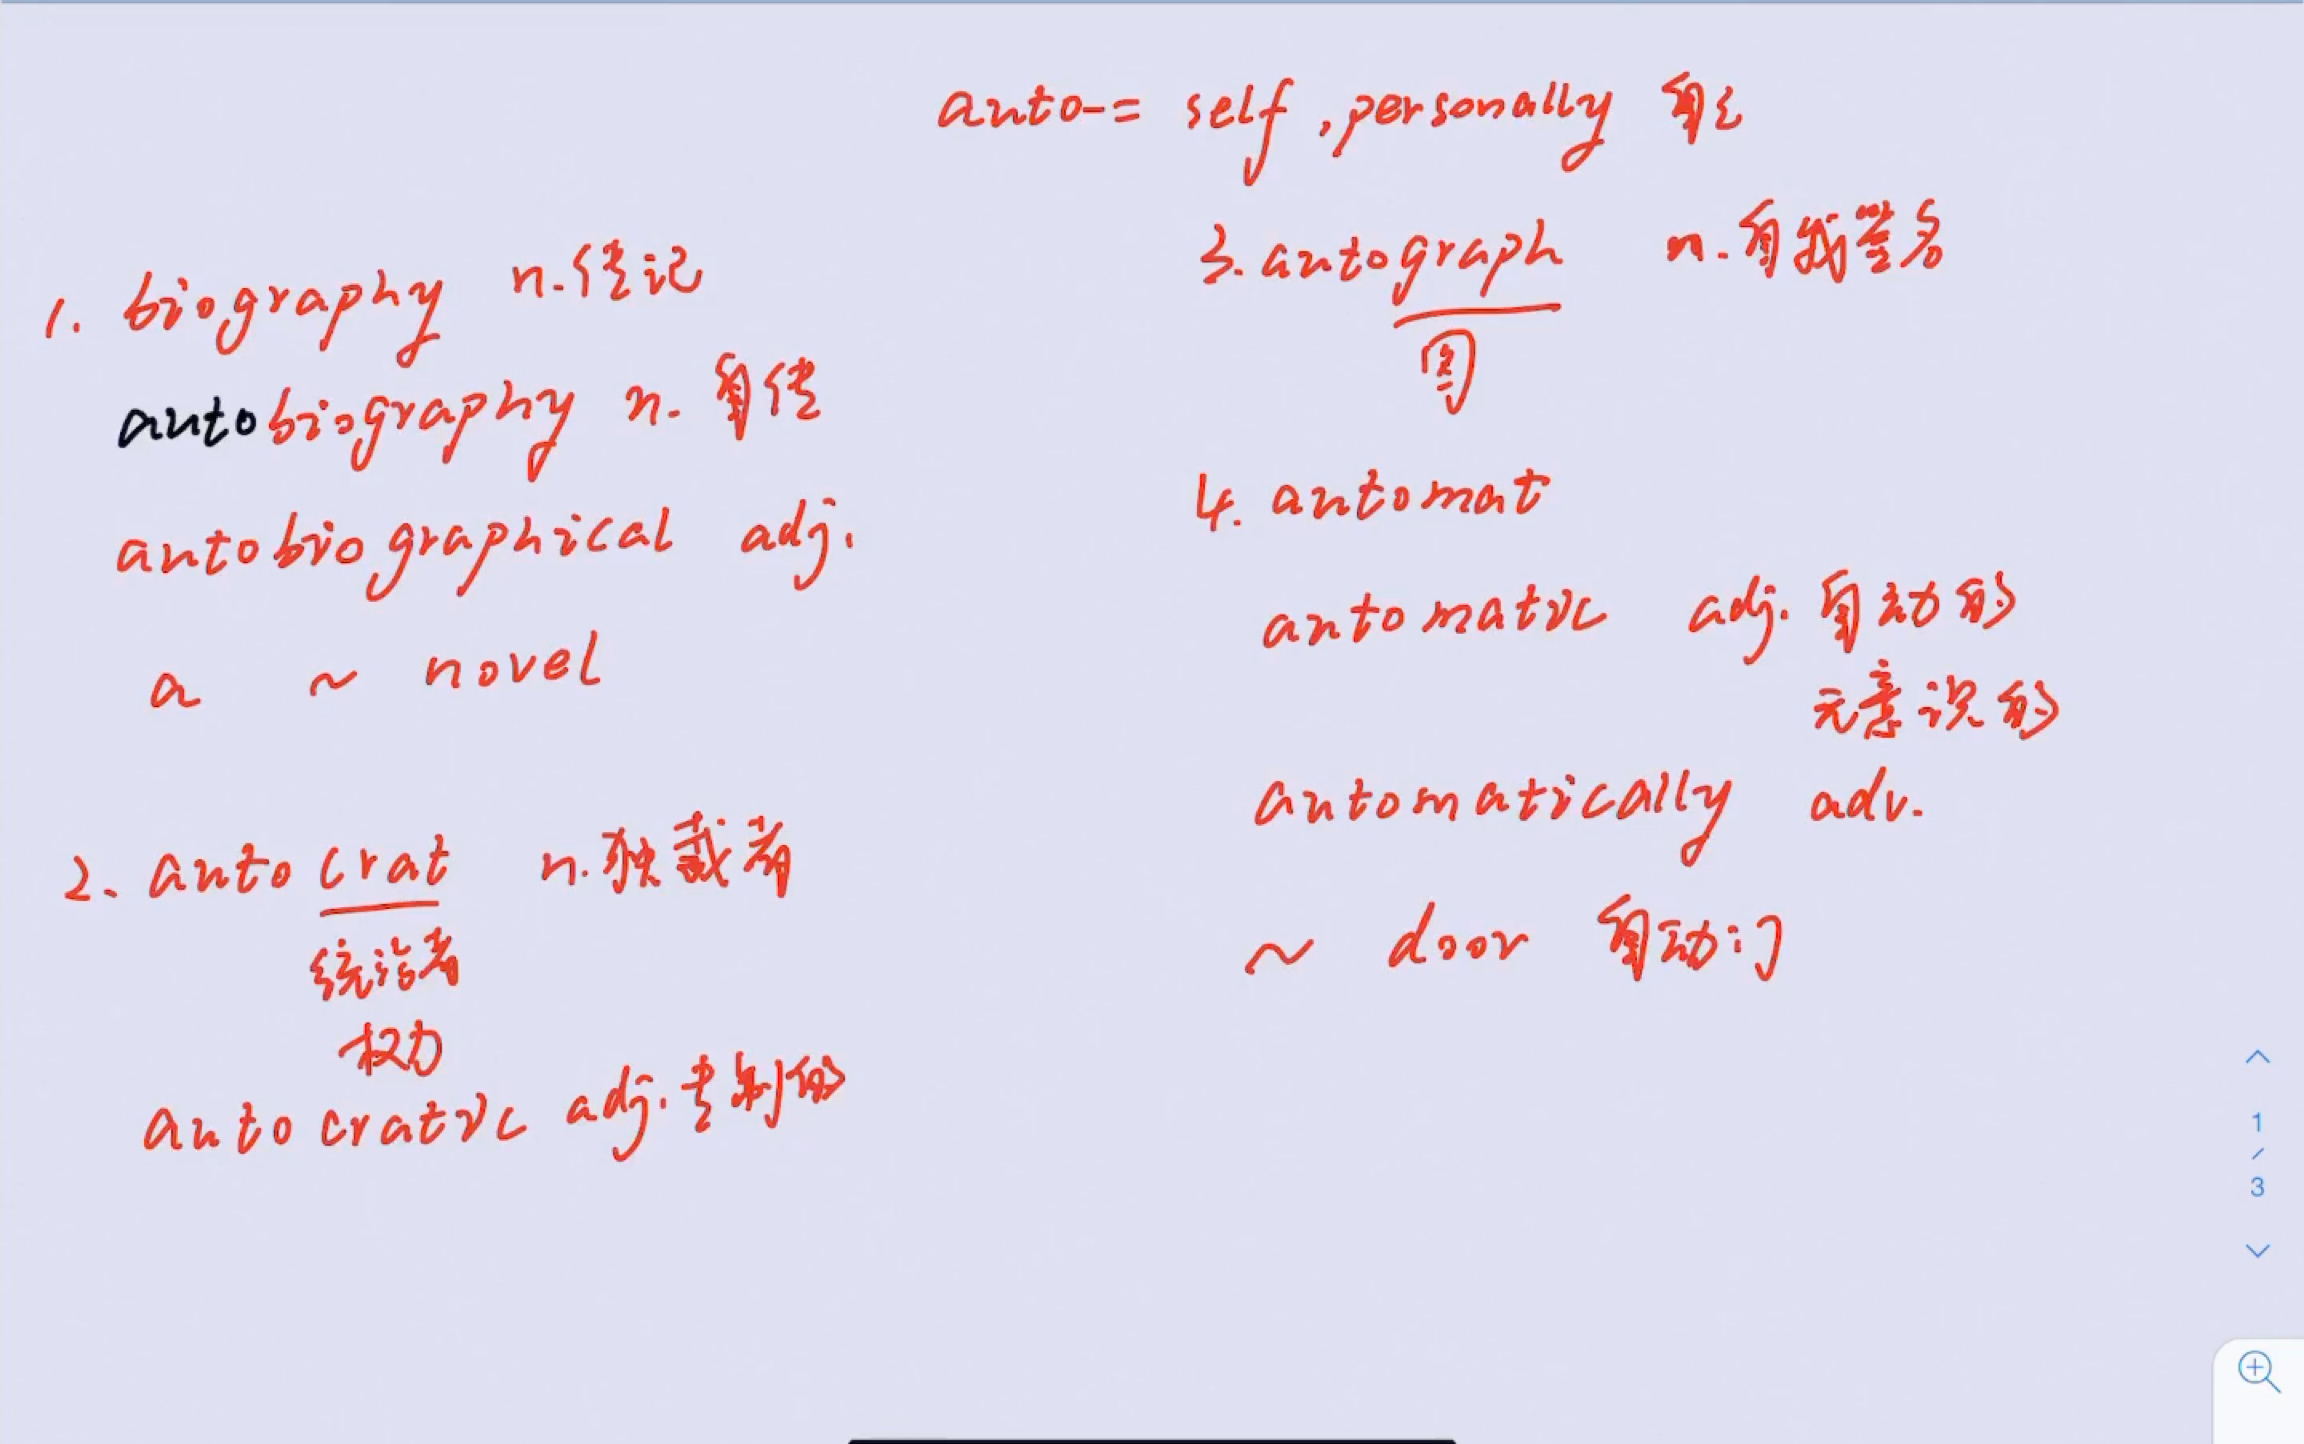 auto-= self, personally 自己
1. biography n.传记
autobiography n. 自传
autobiographical adj.
a ~ novel
2. autocrat n.独裁者
统治者
权力
autocratic adj.专制的
3. autograph n.自我签名
图
4. automat
automatic adj.自动的
无意识的
automatically adv.
~ door 自动门
1
/
3